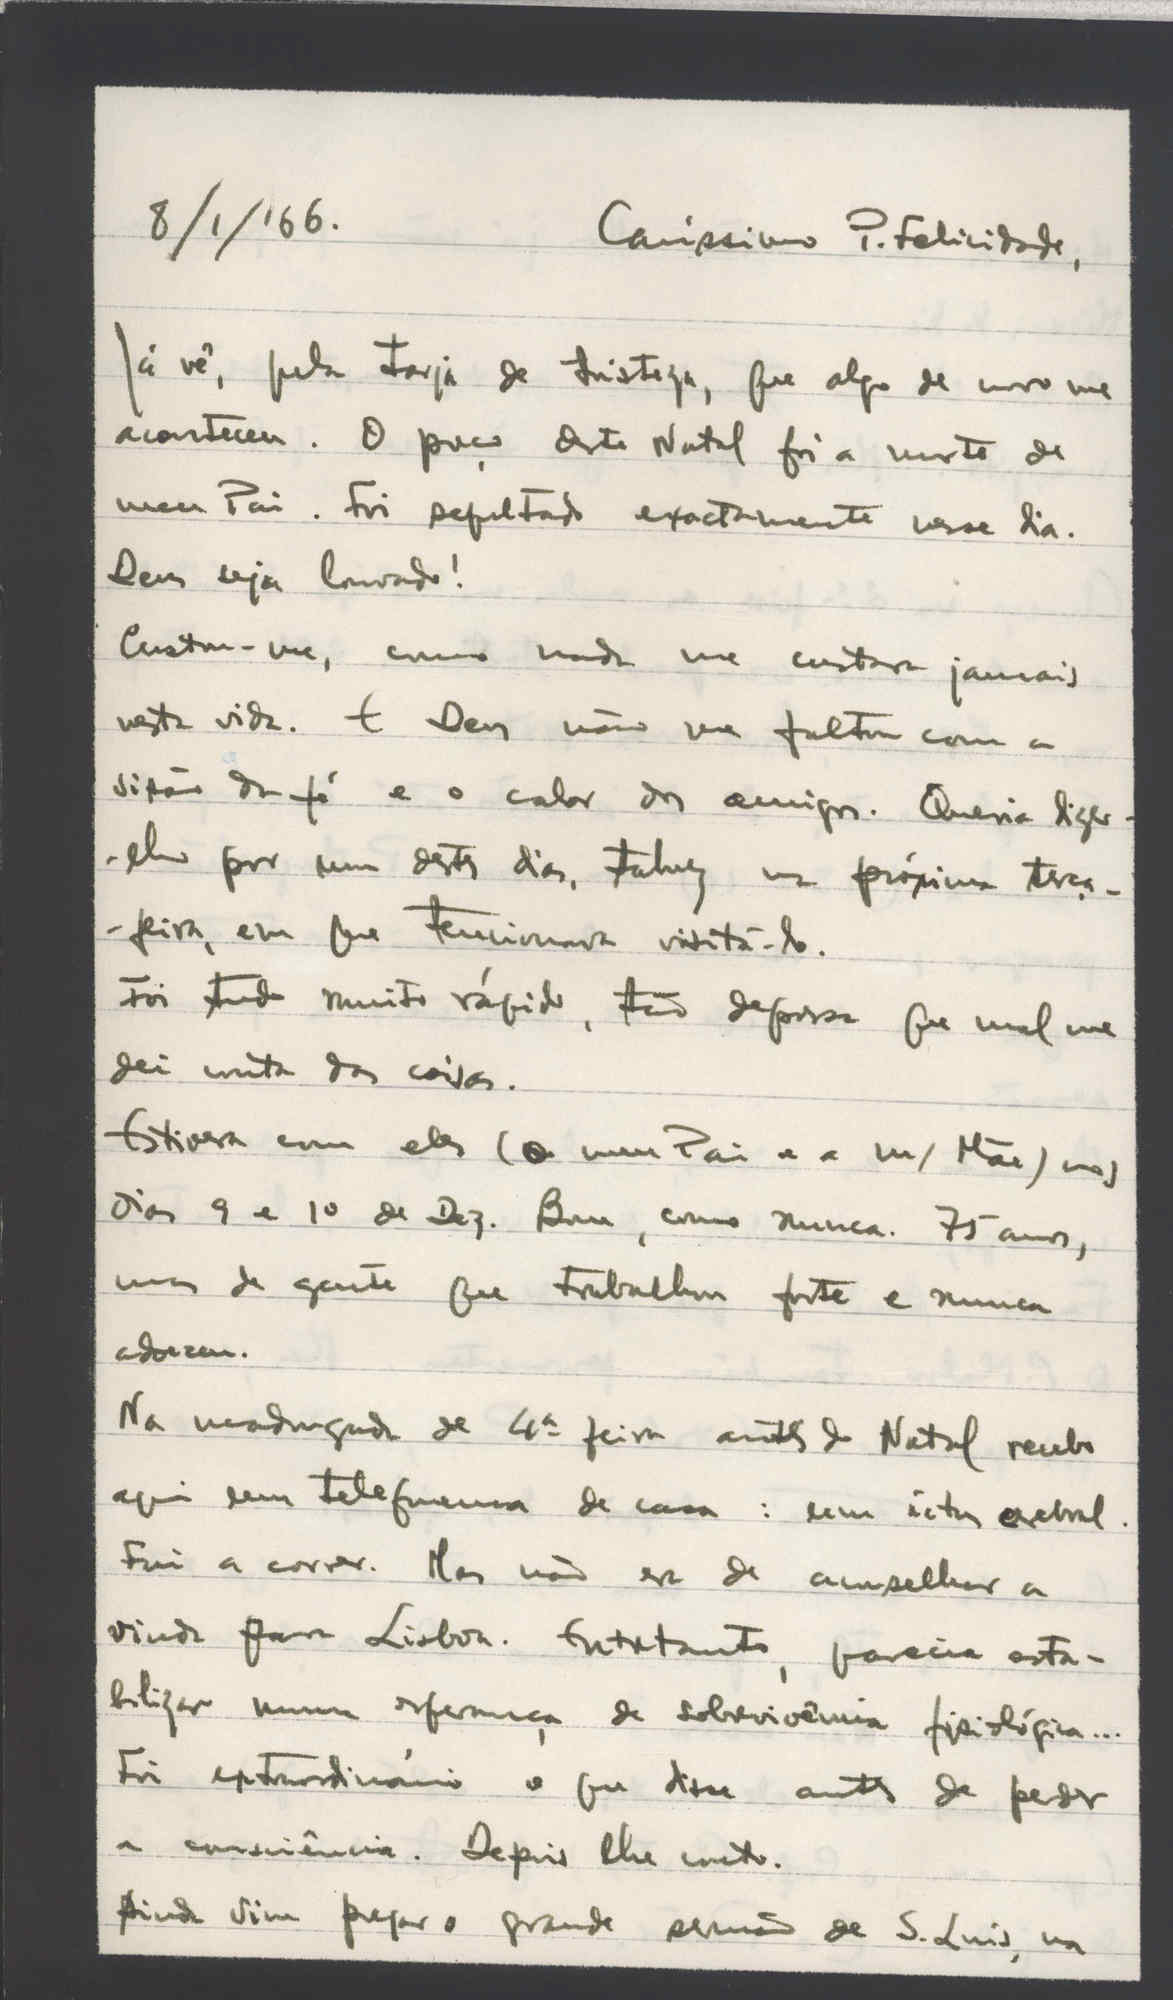 8/1/'66. Caríssimo P. Felicidade,
Já vê, pela tarja de tristeza, que algo de novo me
aconteceu. O preço deste Natal foi a morte de
meu Pai. Foi sepultado exactamente nesse dia.
Deus seja louvado!
Custou-me, como nada me custara jamais
nesta vida. E Deus não me faltou com a
visão da fé e o calor dos amigos. Queria dizer-
-lho por um destes dias, talvez na próxima terça-
-feira, em que tencionava visitá-lo.
Foi tudo muito rápido, tão depressa que mal me
dei conta das coisas.
Estivera com eles (o meu Pai e a m/ Mãe) nos
dias 9 e 10 de Dez. Bom, como nunca. 75 anos,
mas de gente que trabalhou forte e nunca
adoeceu.
Na madrugada de 4ª feira antes do Natal recebo
aqui um telefonema de casa: um ictus cerebral.
Fui a correr. Mas não era de aconselhar a
vinda para Lisboa. Entretanto, parecia esta-
bilizar numa esperança de sobrevivência fisiológica...
Foi extraordinário o que disse antes de perder
a consciência. Depois lhe conto.
Ainda vim pregar o grande sermão de S. Luis, na